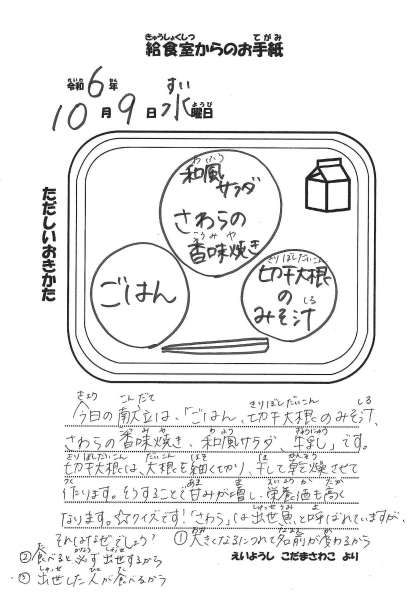 給食室からのお手紙
令和6年
10月9日水曜日
ただしいおきかた
和風
サラダ
さわらの
香味焼き
ごはん
切干大根
の
みそ汁
今日の献立は、「ごはん、切干大根のみそ汁、
さわらの香味焼き、和風サラダ、牛乳」です。
切干大根は、大根を細く切り、干して乾燥させて
作ります。そうすることで甘みが増し、栄養価も高く
なります。☆クイズです!「さわら」は出世魚と呼ばれていますが、
それはなぜでしょう?
①大きくなるにつれて名前が変わるから
②食べると必ず出世するから
③出世した人が食べるから
えいようし こだまさわこ より